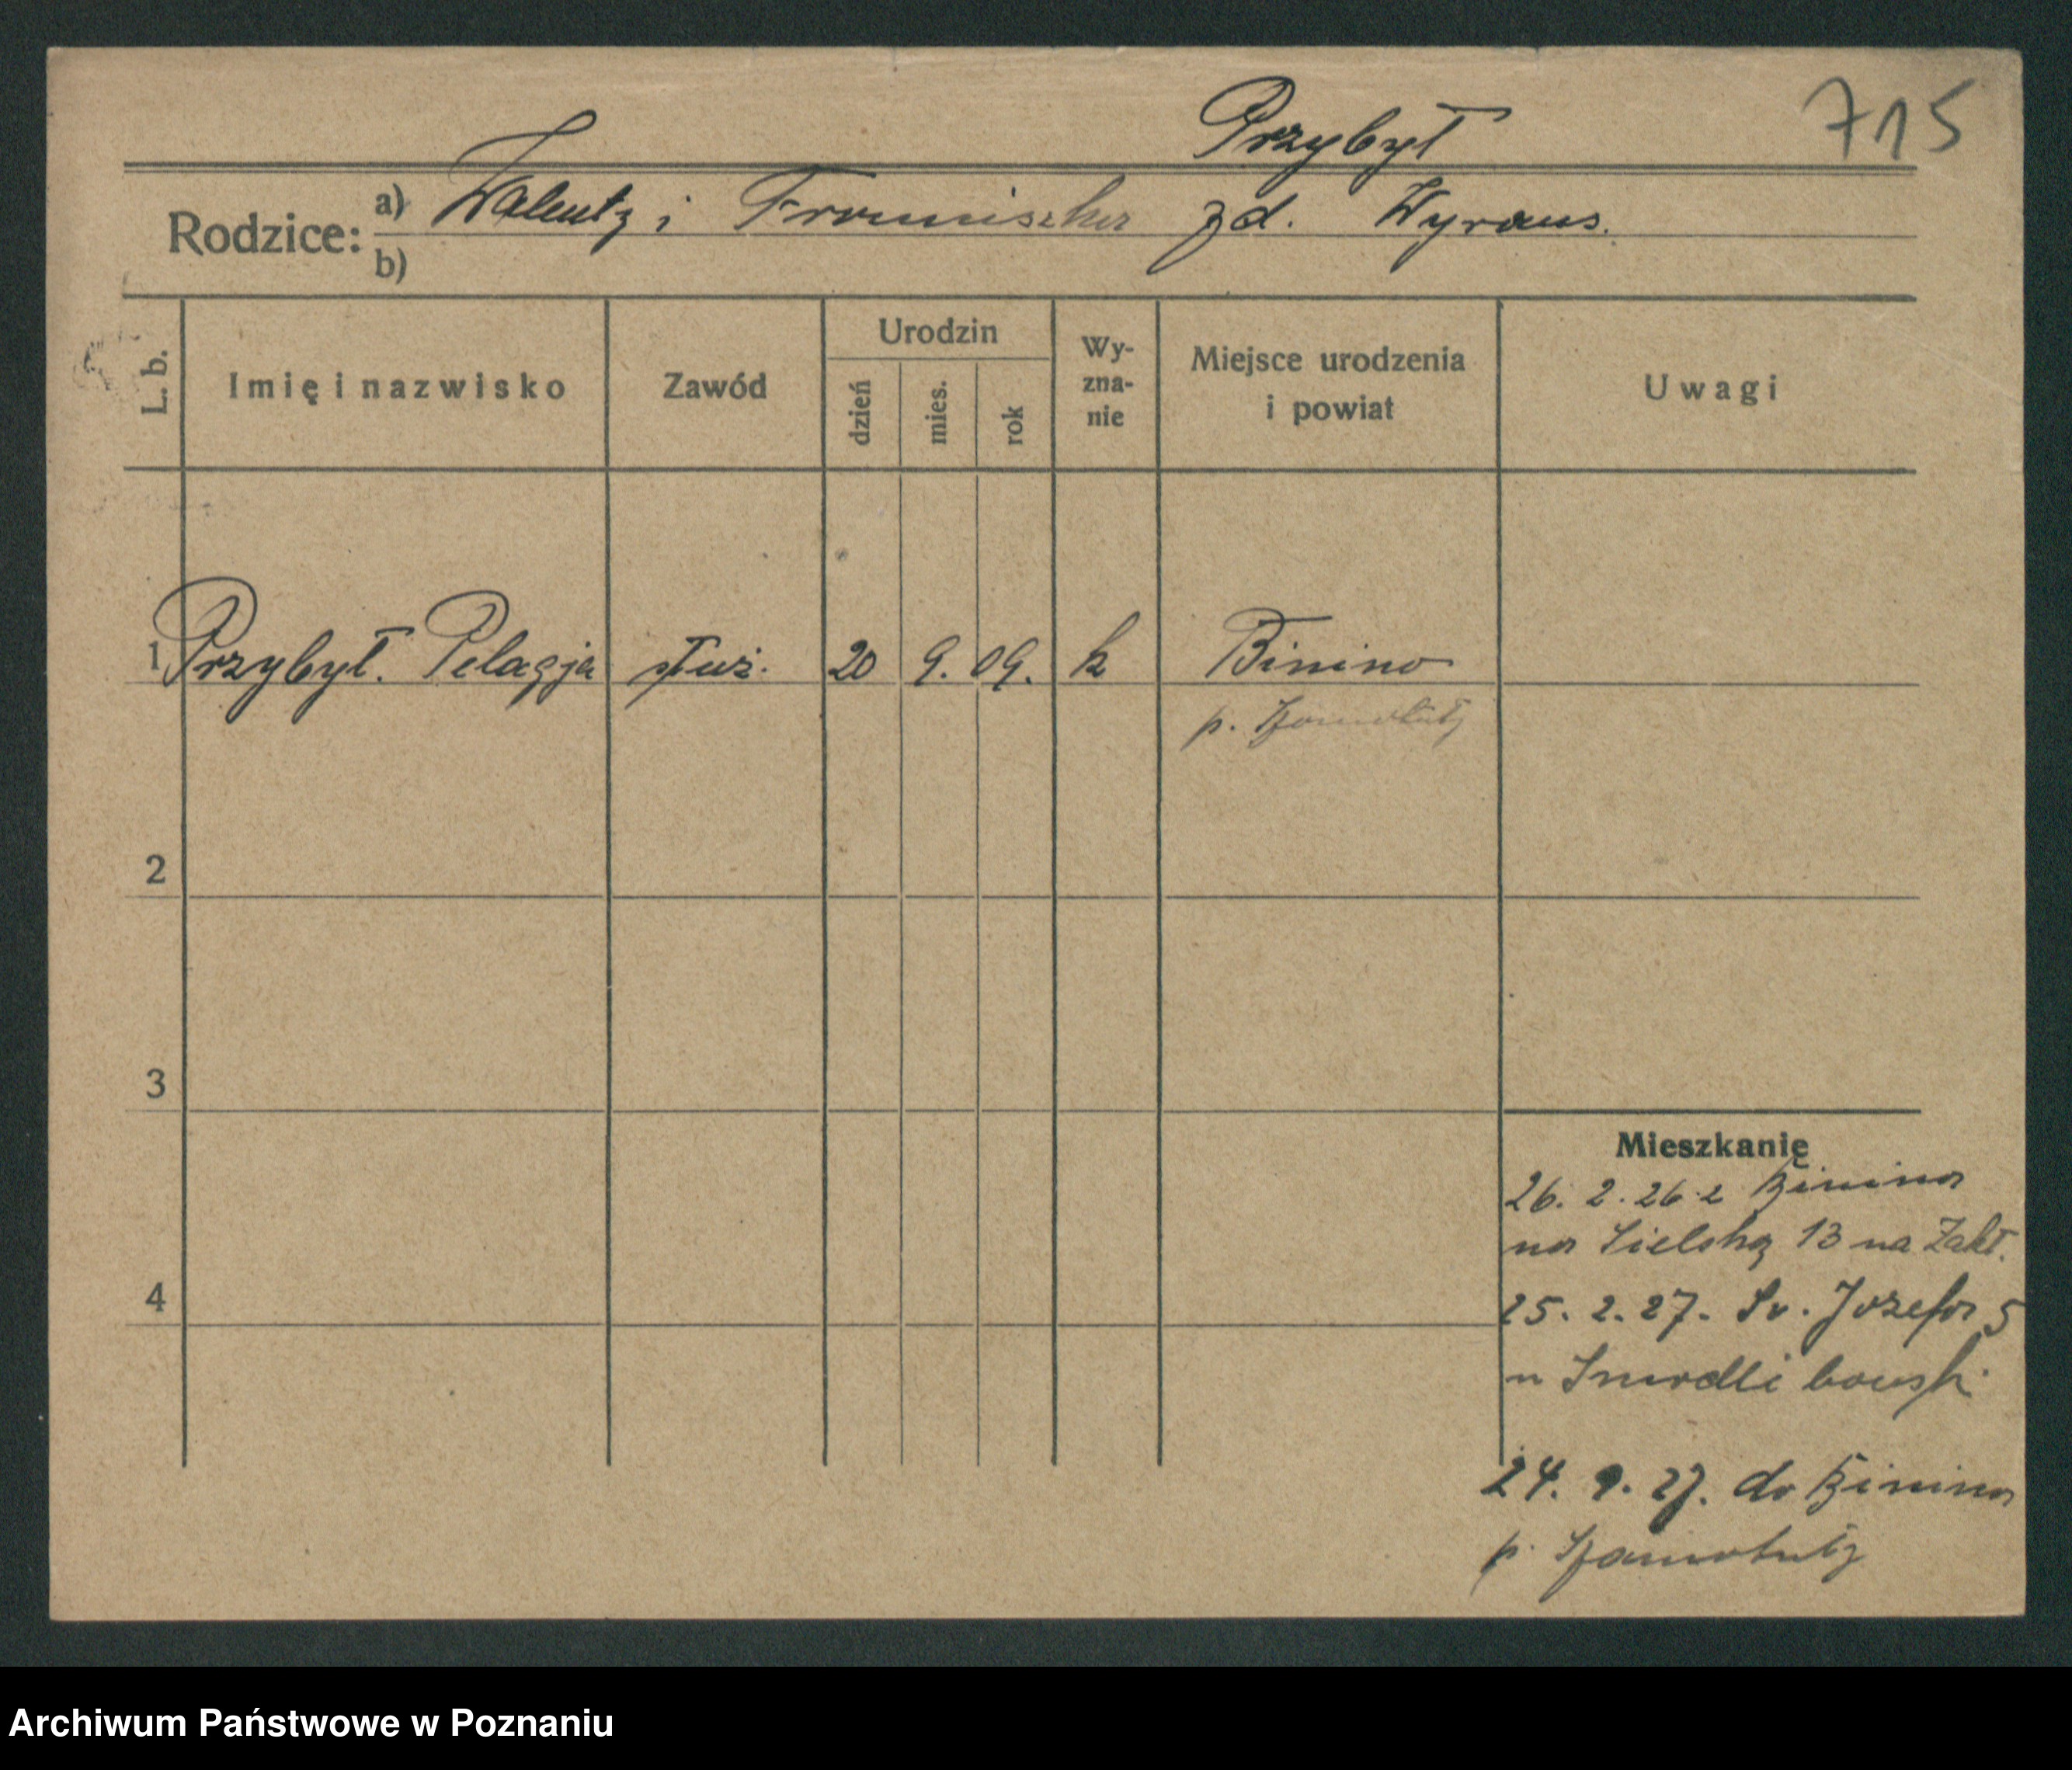 Przybył 715
Rodzice: a) Walenty i Franciszka zd. Wyraus.
b)
L. b. Imię i nazwisko Zawód Urodzin dzień mies. rok Wyzna-nie Miejsce urodzenia i powiat Uwagi
1 Przybył. Pelagja służ. 20 9. 09. k Binino
p. Szamotuły
2
3
Mieszkanie
26. 2. 26 z Binina
na Sielską 13 na Zakł.
4
25. 2. 27. Św. Józefa 5
u
24. 9. 27. do Binina
p. Szamotuły
Archiwum Państwowe w Poznaniu